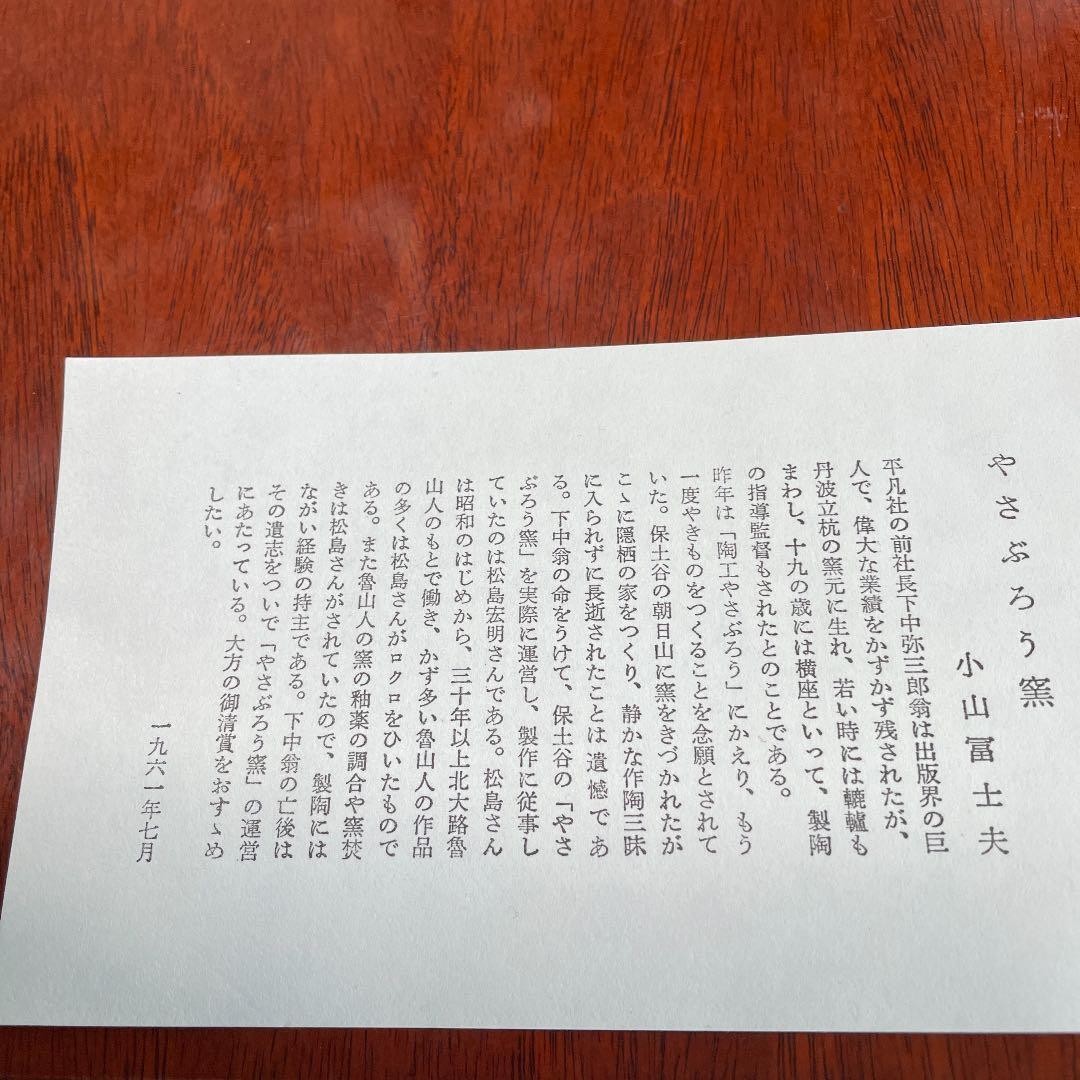 やさぶろう窯
小山冨士夫
平凡社の前社長下中弥三郎翁は出版界の巨
人で、偉大な業績をかずかず残されたが、
丹波立杭の窯元に生れ、若い時には轆轤も
まわし、十九の歳には横座といって、製陶
の指導監督もされたとのことである。
昨年は「陶工やさぶろう」にかえり、もう
一度やきものをつくることを念願とされて
いた。保土谷の朝日山に窯をきづかれたが
こゝに隠栖の家をつくり、静かな作陶三昧
に入られずに長逝されたことは遺憾であ
る。下中翁の命をうけて、保土谷の「やさ
ぶろう窯」を実際に運営し、製作に従事し
ていたのは松島宏明さんである。松島さん
は昭和のはじめから、三十年以上北大路魯
山人のもとで働き、かず多い魯山人の作品
の多くは松島さんがロクロをひいたもので
ある。また魯山人の窯の釉薬の調合や窯焚
きは松島さんがされていたので、製陶には
ながい経験の持主である。下中翁の亡後は
その遺志をついで「やさぶろう窯」の運営
にあたっている。大方の御清賞をおすゝめ
したい。
一九六一年七月